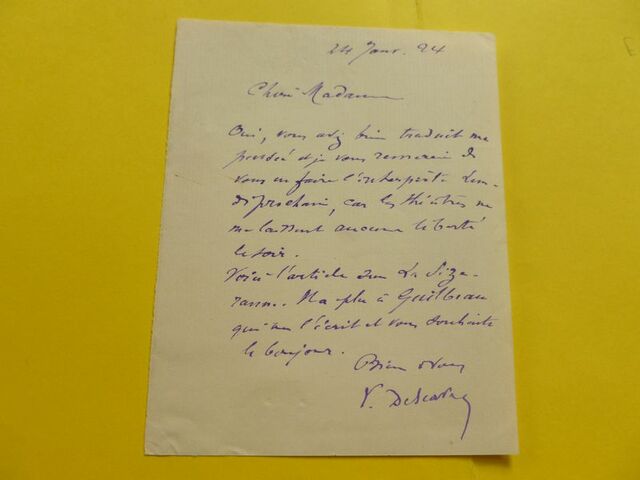 24 Janv. 24
Chère Madame
Oui, vous avez bien traduit ma
pensée et je vous remercie de
vous en faire l'interprète Lun-
di prochain, car les théâtres ne
me laissent aucune liberté
le soir.
Voici l'article La Size-
ranne. Il a plu à Guilbeau
qui me l'écrit et vous souhaite
le bonjour.
Bien à vous